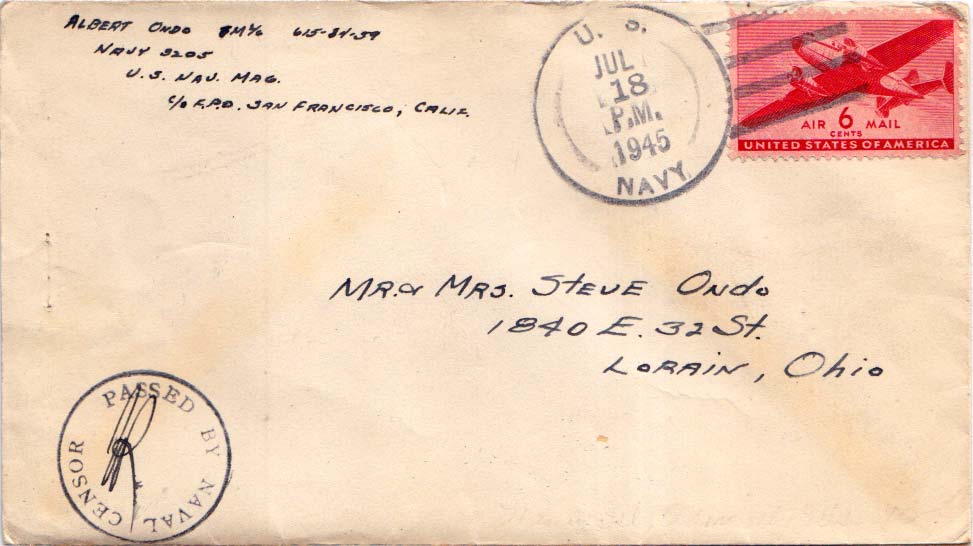 ALBERT ONDO SM1/c 615-34-59
NAVY 3205
U.S. NAV. MAG.
C/O F.P.O. SAN FRANCISCO, CALIF.
U. S.
JUL
18
P.M.
1945
NAVY
AIR 6 MAIL
CENTS
UNITED STATES OF AMERICA
MR. & MRS. STEVE ONDO
1840 E. 32 St.
LORAIN, OHIO
PASSED BY NAVAL CENSOR